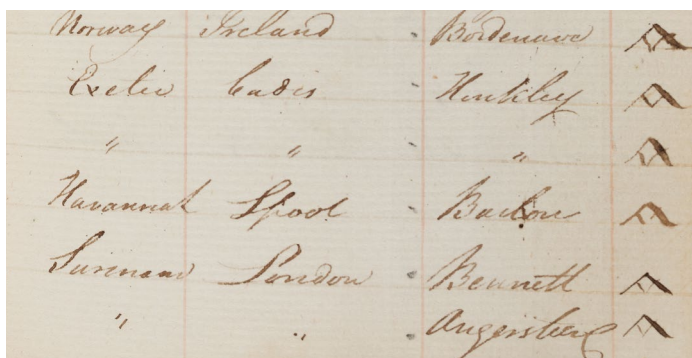 Norway Ireland Bordenave
Exeter Cadis Hinkley
" " "
Havannah Lpool
Surinam London Bennett
" "